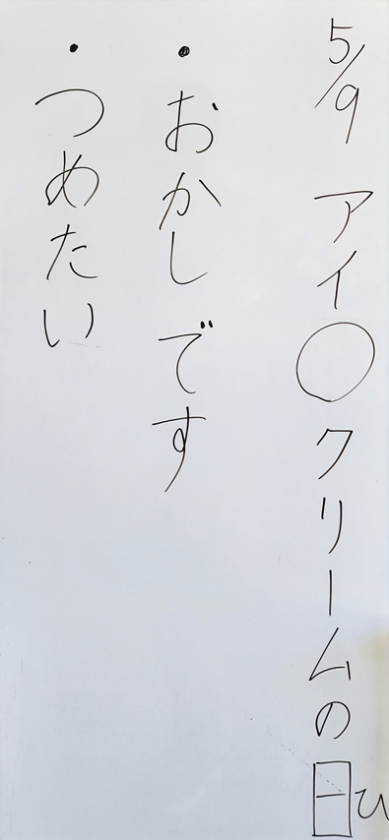 5/9 アイ○クリームの日ひ
・おかしです
・つめたい